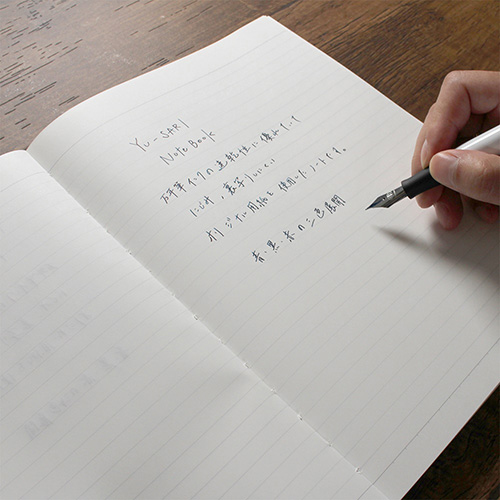 YU-SARI
Note Book
万年筆インクの速乾性に優れていて
にじみ、裏写りしにくい
オリジナル用紙を使用したノートです。
青・黒・赤の三色展開